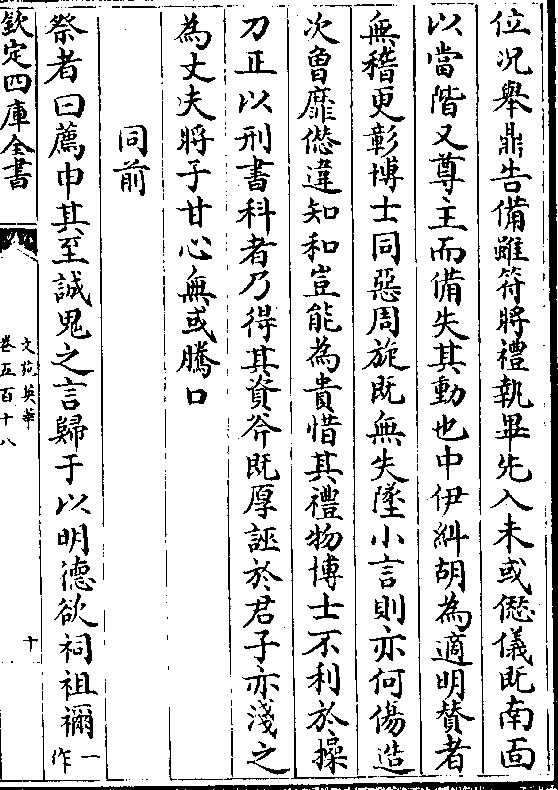 位况舉鼎告備雖符將禮執畢先入未或愆儀既南面
以當階又尊主而備失其動也中伊糾胡為適明贊者
無稽更彰博士同惡周旋既無失墜小言則亦何傷造
次魯靡愆違知和豈能為貴惜其禮物博士不利於操
刀正以刑書科者乃得其資斧既厚誣於君子亦淺之
為丈夫將子甘心無或騰口
同前
祭者曰薦巾其至誠鬼之言歸于以明德欲祠祖禰一作
欽定四庫全書
文苑英華
卷五百十八
十